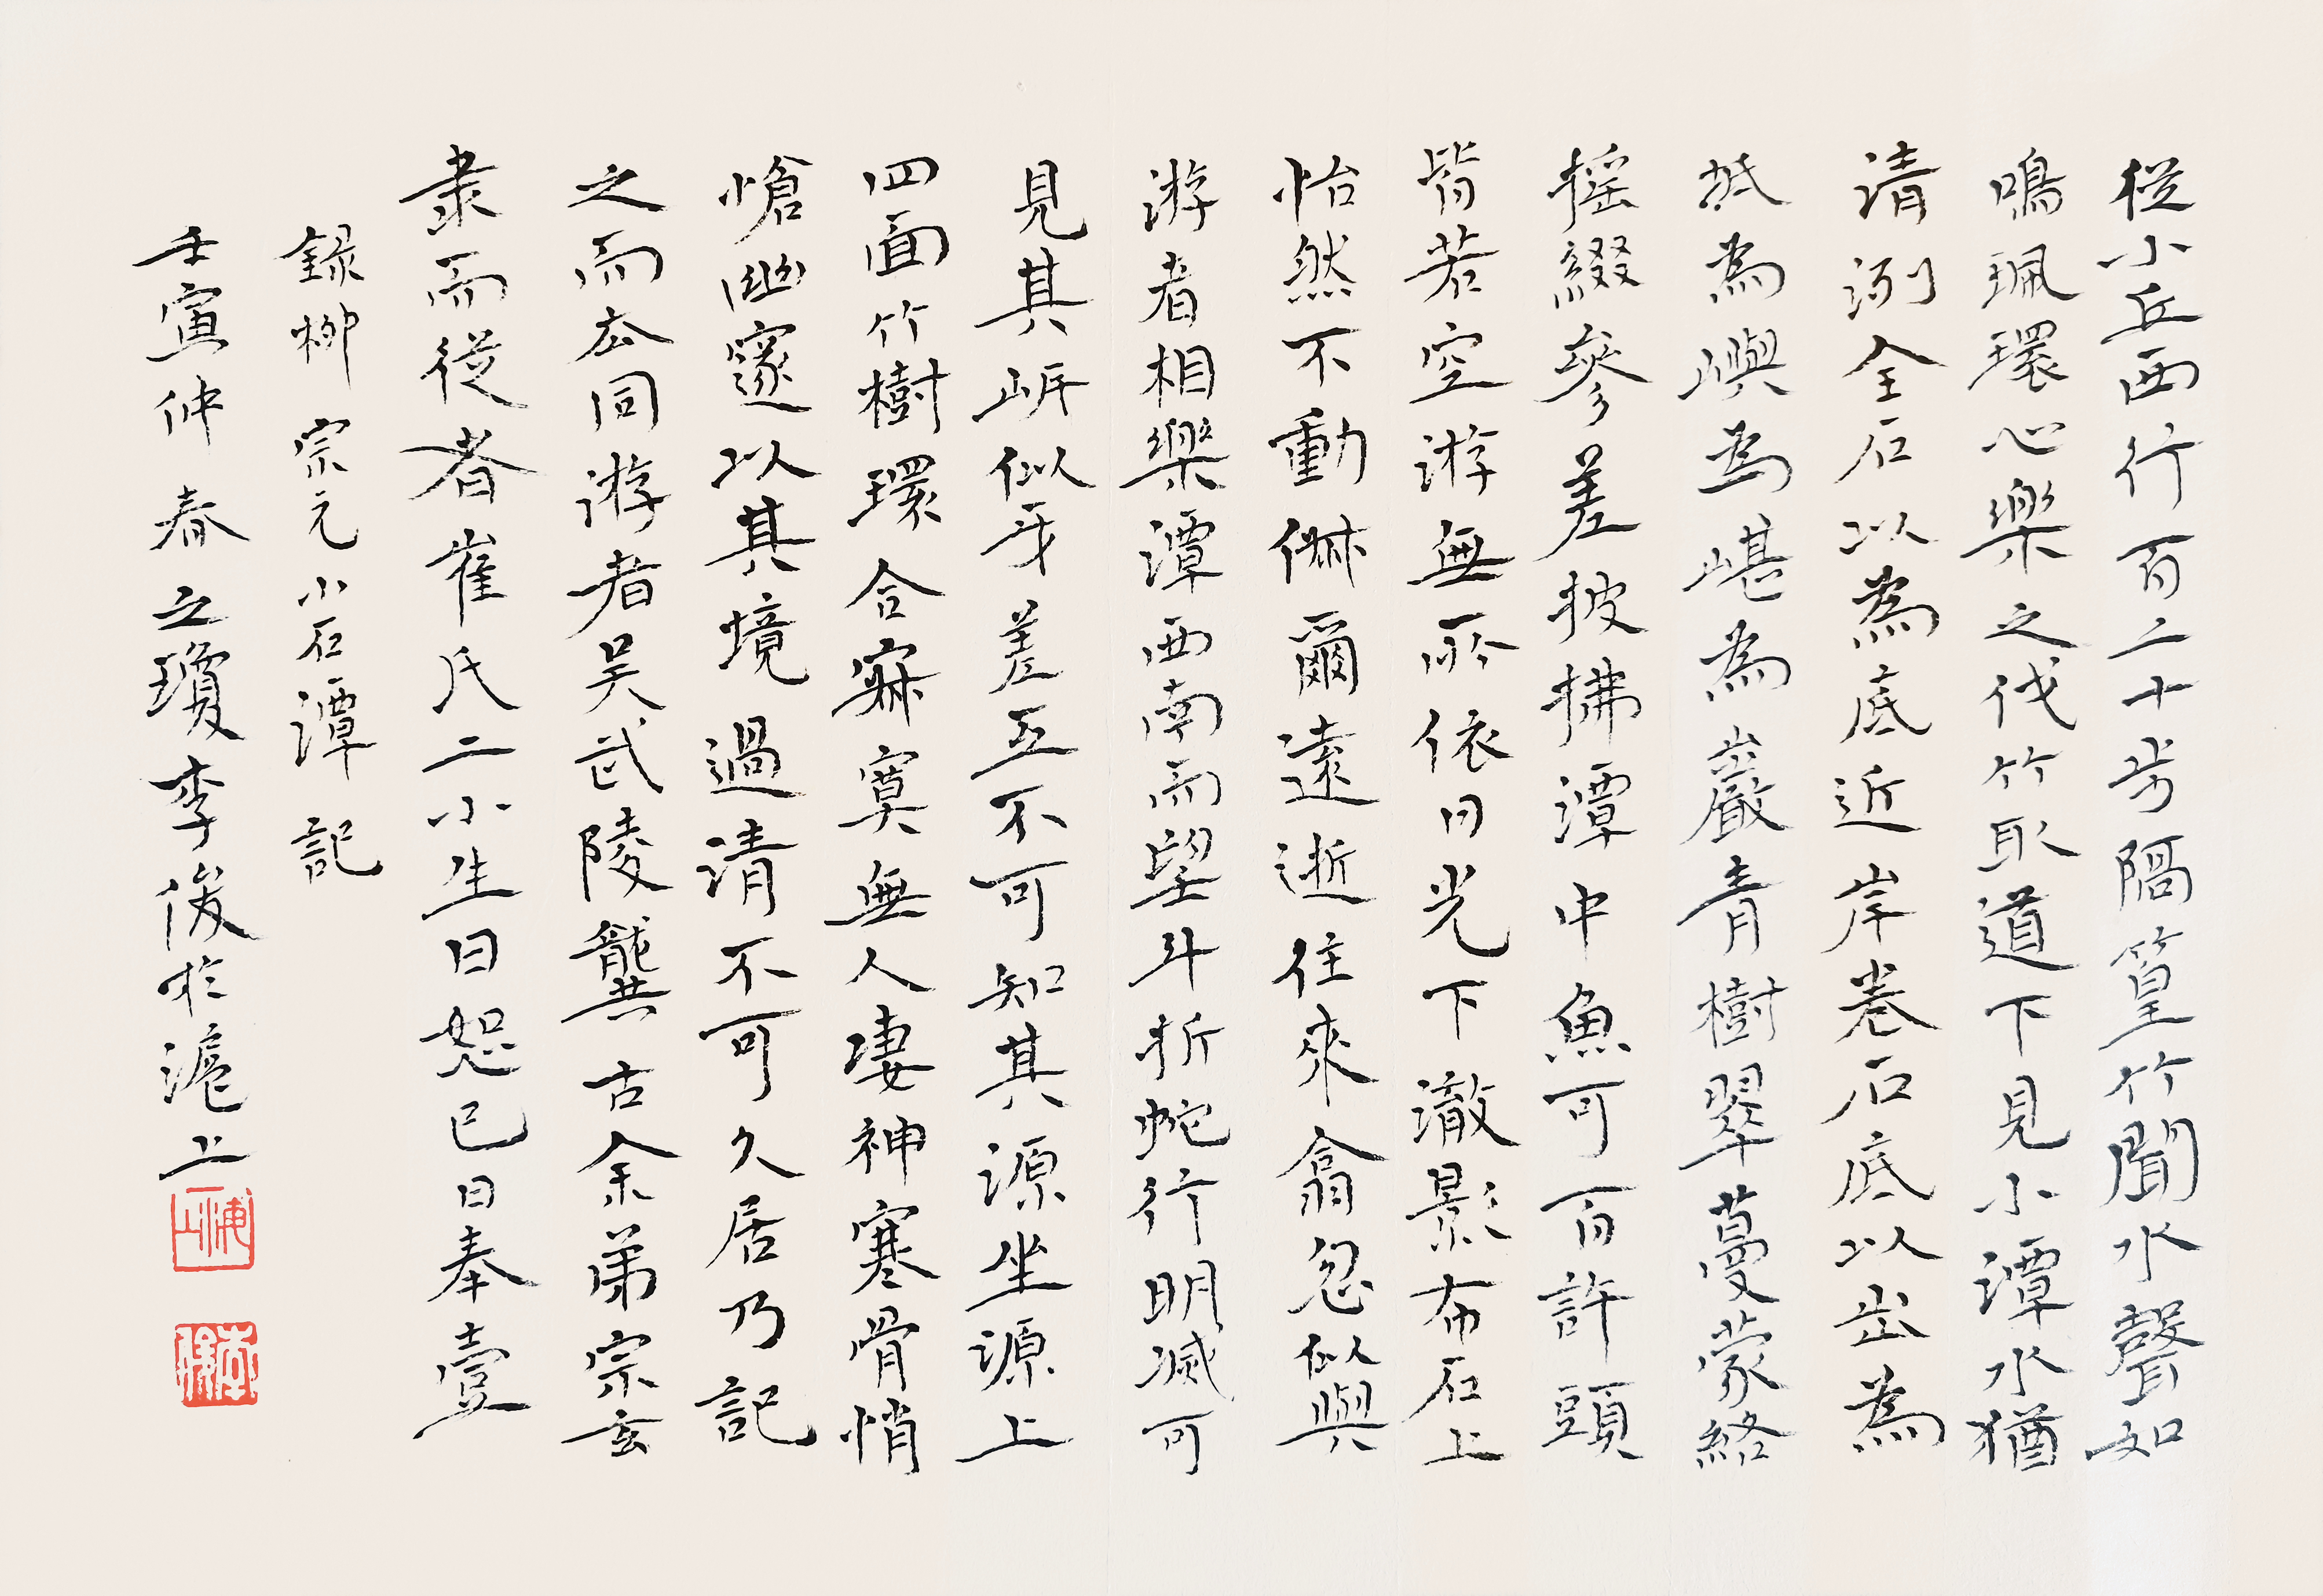 從小丘西行百二十步隔篁竹聞水聲如
鳴珮環心樂之伐竹取道下見小潭水猶
清洌全石以為底近岸卷石底以出為
坻為嶼為嵁為巖青樹翠蔓蒙絡
搖綴參差披拂潭中魚可百許頭
皆若空游無所依日光下澈影布石上
怡然不動俶爾遠逝往來翕忽似與
游者相樂潭西南而望斗折蛇行明滅可
見其岈似牙差互不可知其源坐源上
四面竹樹環合寂寞無人凄神寒骨悄
愴幽邃以其境過清不可久居乃記
之而去同游者吳武陵龔古余弟宗玄
隸而從者崔氏二小生曰恕己曰奉壹
錄柳宗元小石潭記
壬寅仲春之瓊李俊於滬上